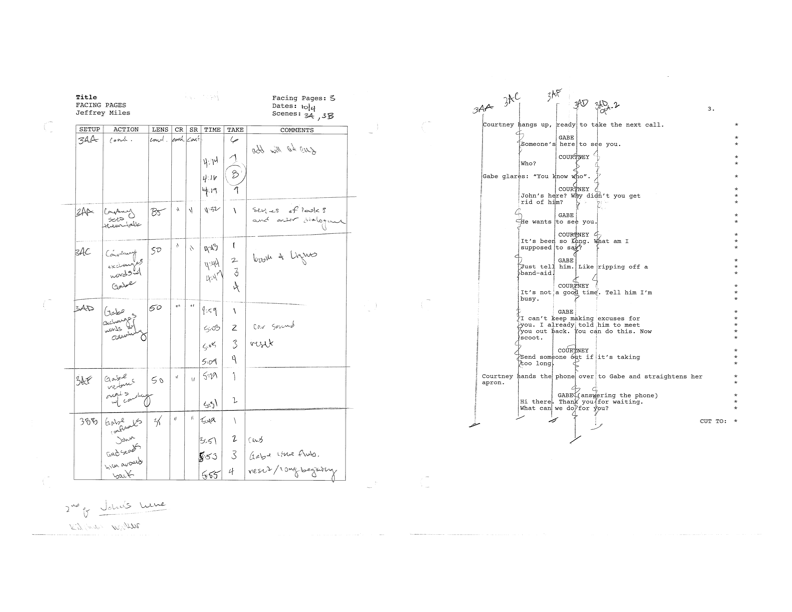 Title
FACING PAGES
Jeffrey Miles
Facing Pages: 3
Dates: 10/4
Scenes: 3A, 3B
SETUP ACTION LENS CR SR TIME TAKE COMMENTS
3AA cont. cont. cont. cont. 6
4:14 7
4:16 8
4:19 9
85 4:32 1 Series of looks
3AC 50 4:43 1
4:44 2
4:47 3
4
Gabe
3AD Gabe 50 4:59 1
exchanges
words w/
Courtney
5:03 2 car sound
3 reset
5:09 4
Gabe 50 5:29 1
5:31 2
3BB Gabe 1
informs
John
5:51 2
and sends
5:53 3
him around
back
5:55 4 reset / long beginning
John's line
3AA
3AC
3AF
3AD
3AD
3.
Courtney hangs up, ready to take the next call. *
*
GABE *
Someone's here to see you. *
*
COURTNEY *
Who? *
*
Gabe glares: "You know who". *
*
COURTNEY *
John's here? Why didn't you get *
rid of him? *
*
GABE *
He wants to see you. *
*
COURTNEY *
It's been so long. What am I *
supposed to say? *
*
GABE *
Just tell him. Like ripping off a *
band-aid. *
*
COURTNEY *
It's not a good time. Tell him I'm *
busy. *
*
GABE *
I can't keep making excuses for *
you. I already told him to meet *
you out back. You can do this. Now *
scoot. *
*
COURTNEY *
Send someone out if it's taking *
too long. *
*
Courtney hands the phone over to Gabe and straightens her *
apron. *
*
GABE (answering the phone) *
Hi there. Thank you for waiting. *
What can we do for you? *
*
CUT TO: *